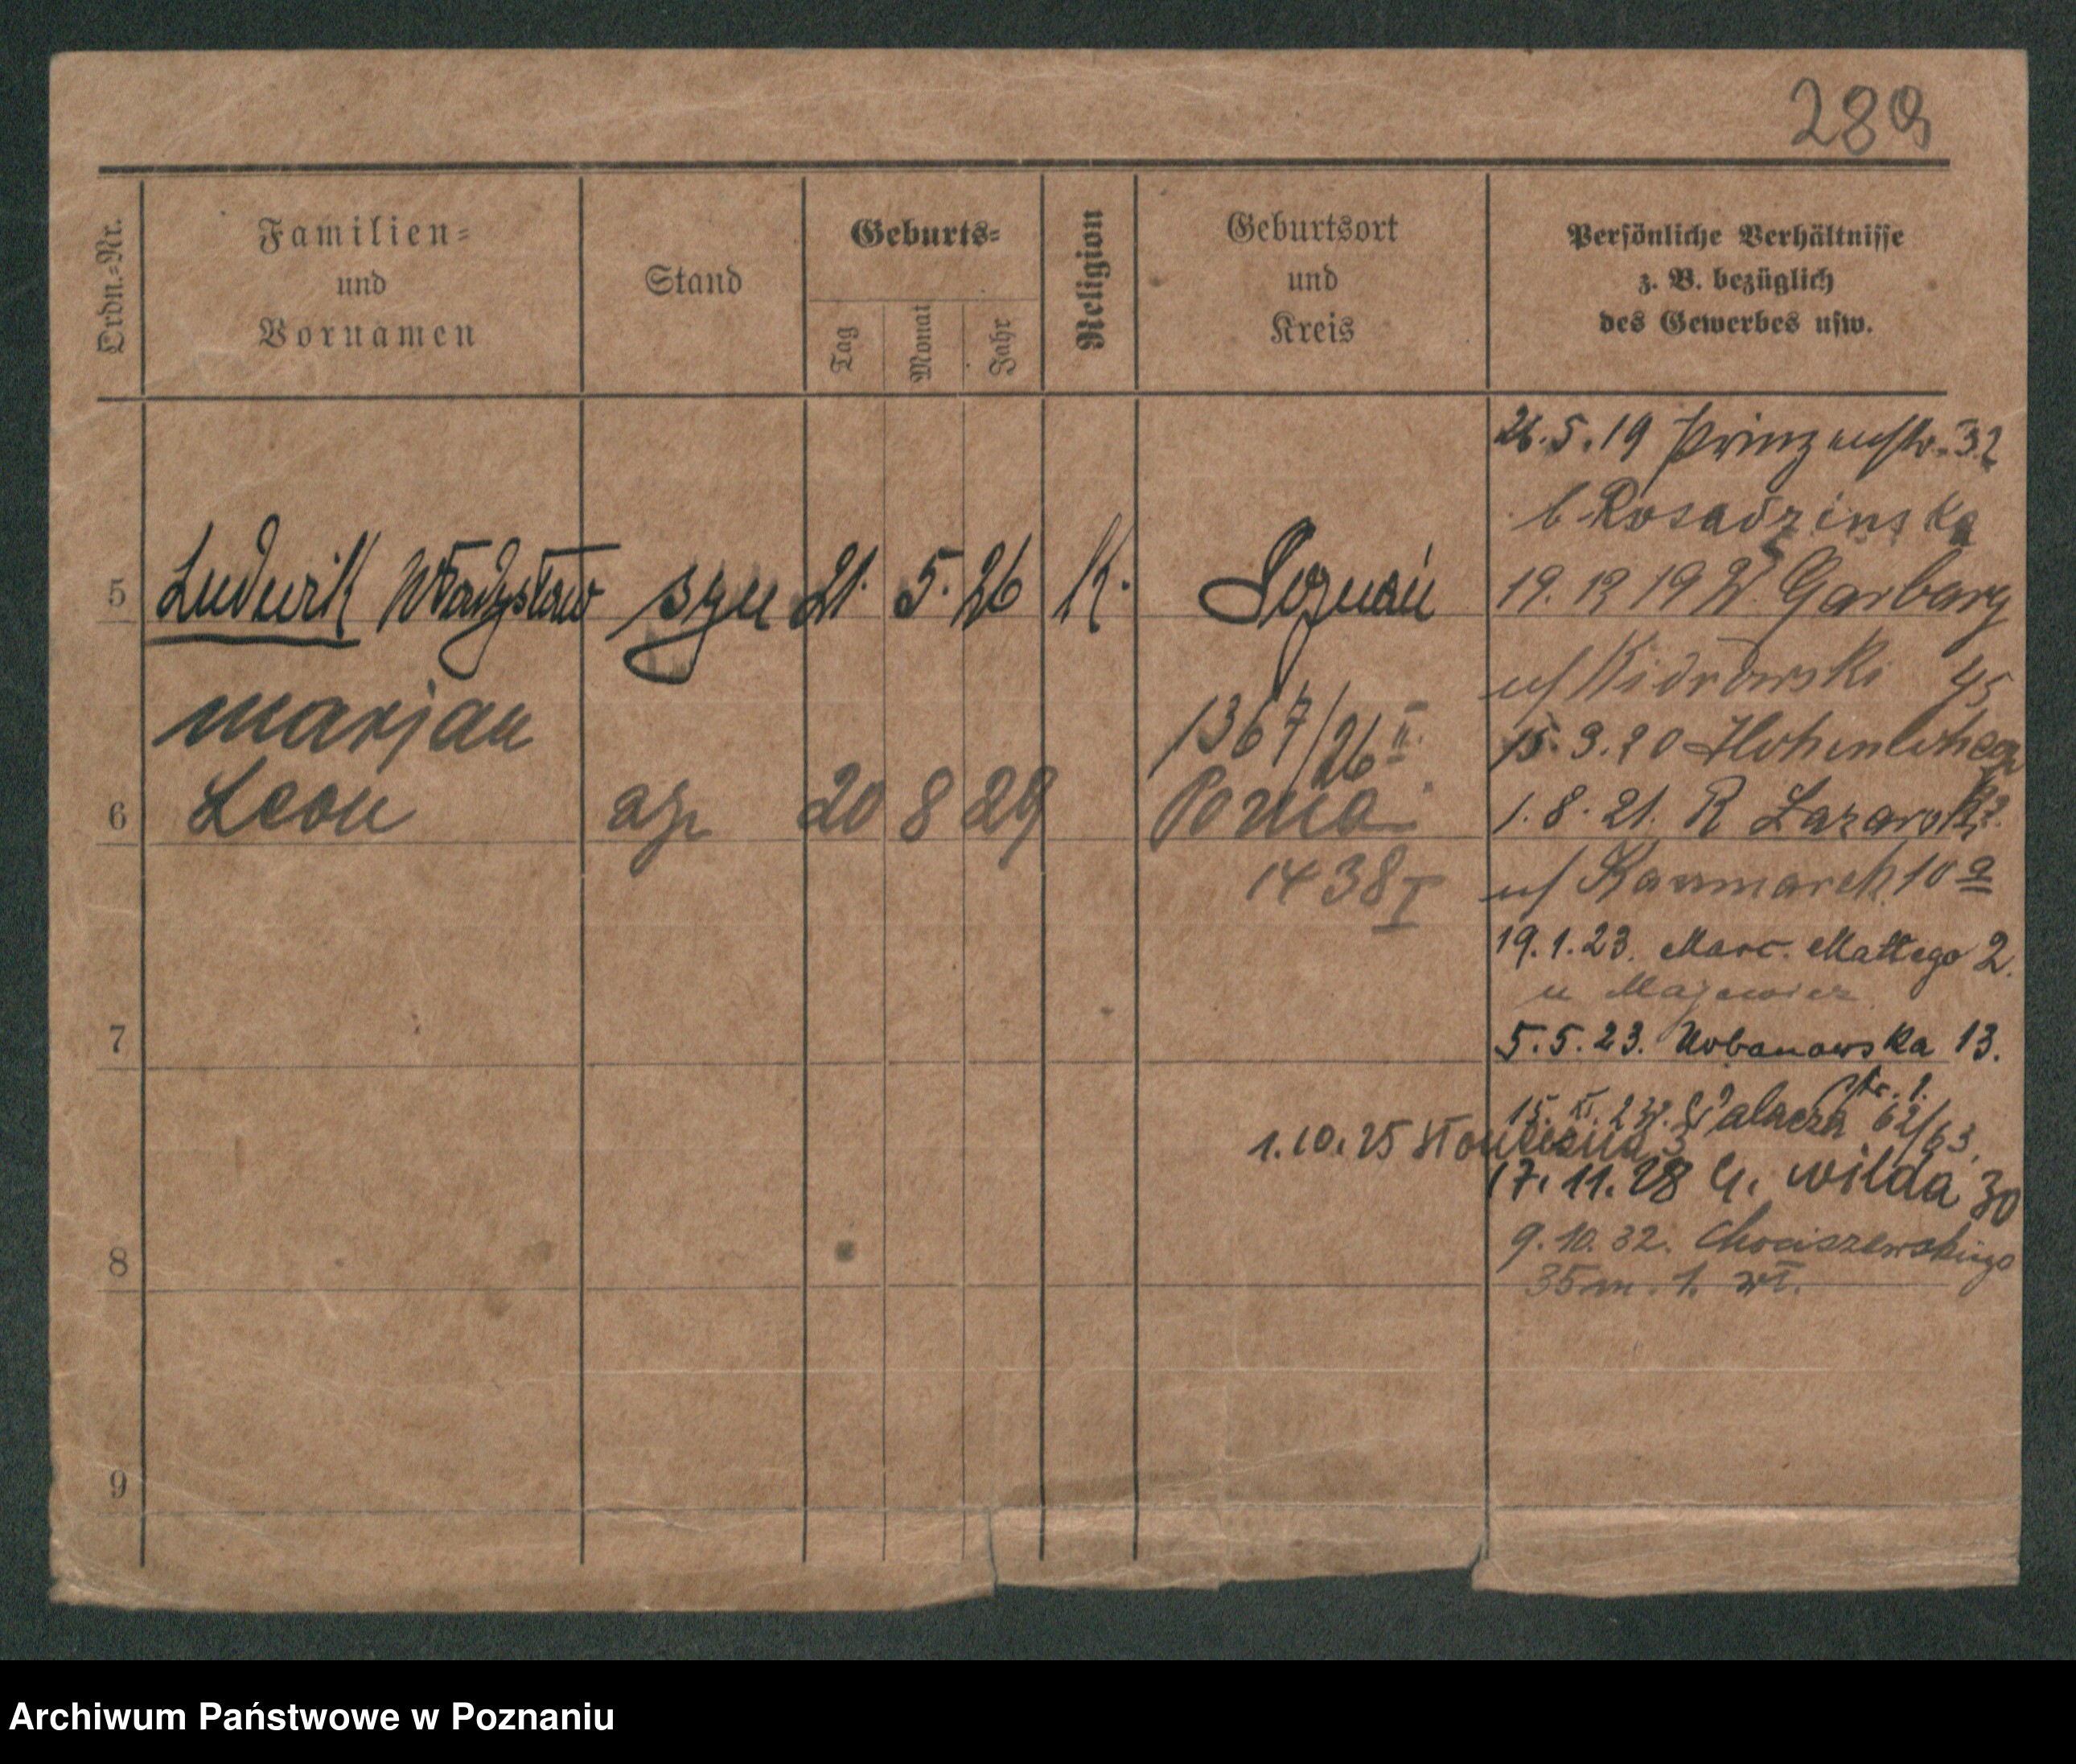 289
Ordn.-Nr.
Familien-
und
Vornamen
Stand
Geburts-
Tag
Monat
Jahr
Religion
Geburtsort
und
Kreis
Persönliche Verhältnisse
z. B. bezüglich
des Gewerbes usw.
5 Ludwik Władysław syn 21. 5. 26 K. Poznań
marjan 1367/26 II.
6 Leon 20 8 29 Pozna
1438 I
7
8
9
26.5.19 Prinzenstr. 32
b Rosadzinska
19. 12 19 W. Garbary
u/ Kidrowski 45
15.3.20
1.8.21. R Lazarski
u/ 10 a
19.1.23. Marc. Mattego 2.
u Majewicz
5.5.23. Urbanowska 13.
str. 1.
15. XI. 23. Palacza 62/63.
1.10.25 3
17.11.28 G. wilda 30
9.10.32. Chociszewskiego
35 m. 1. wł.
Archiwum Państwowe w Poznaniu